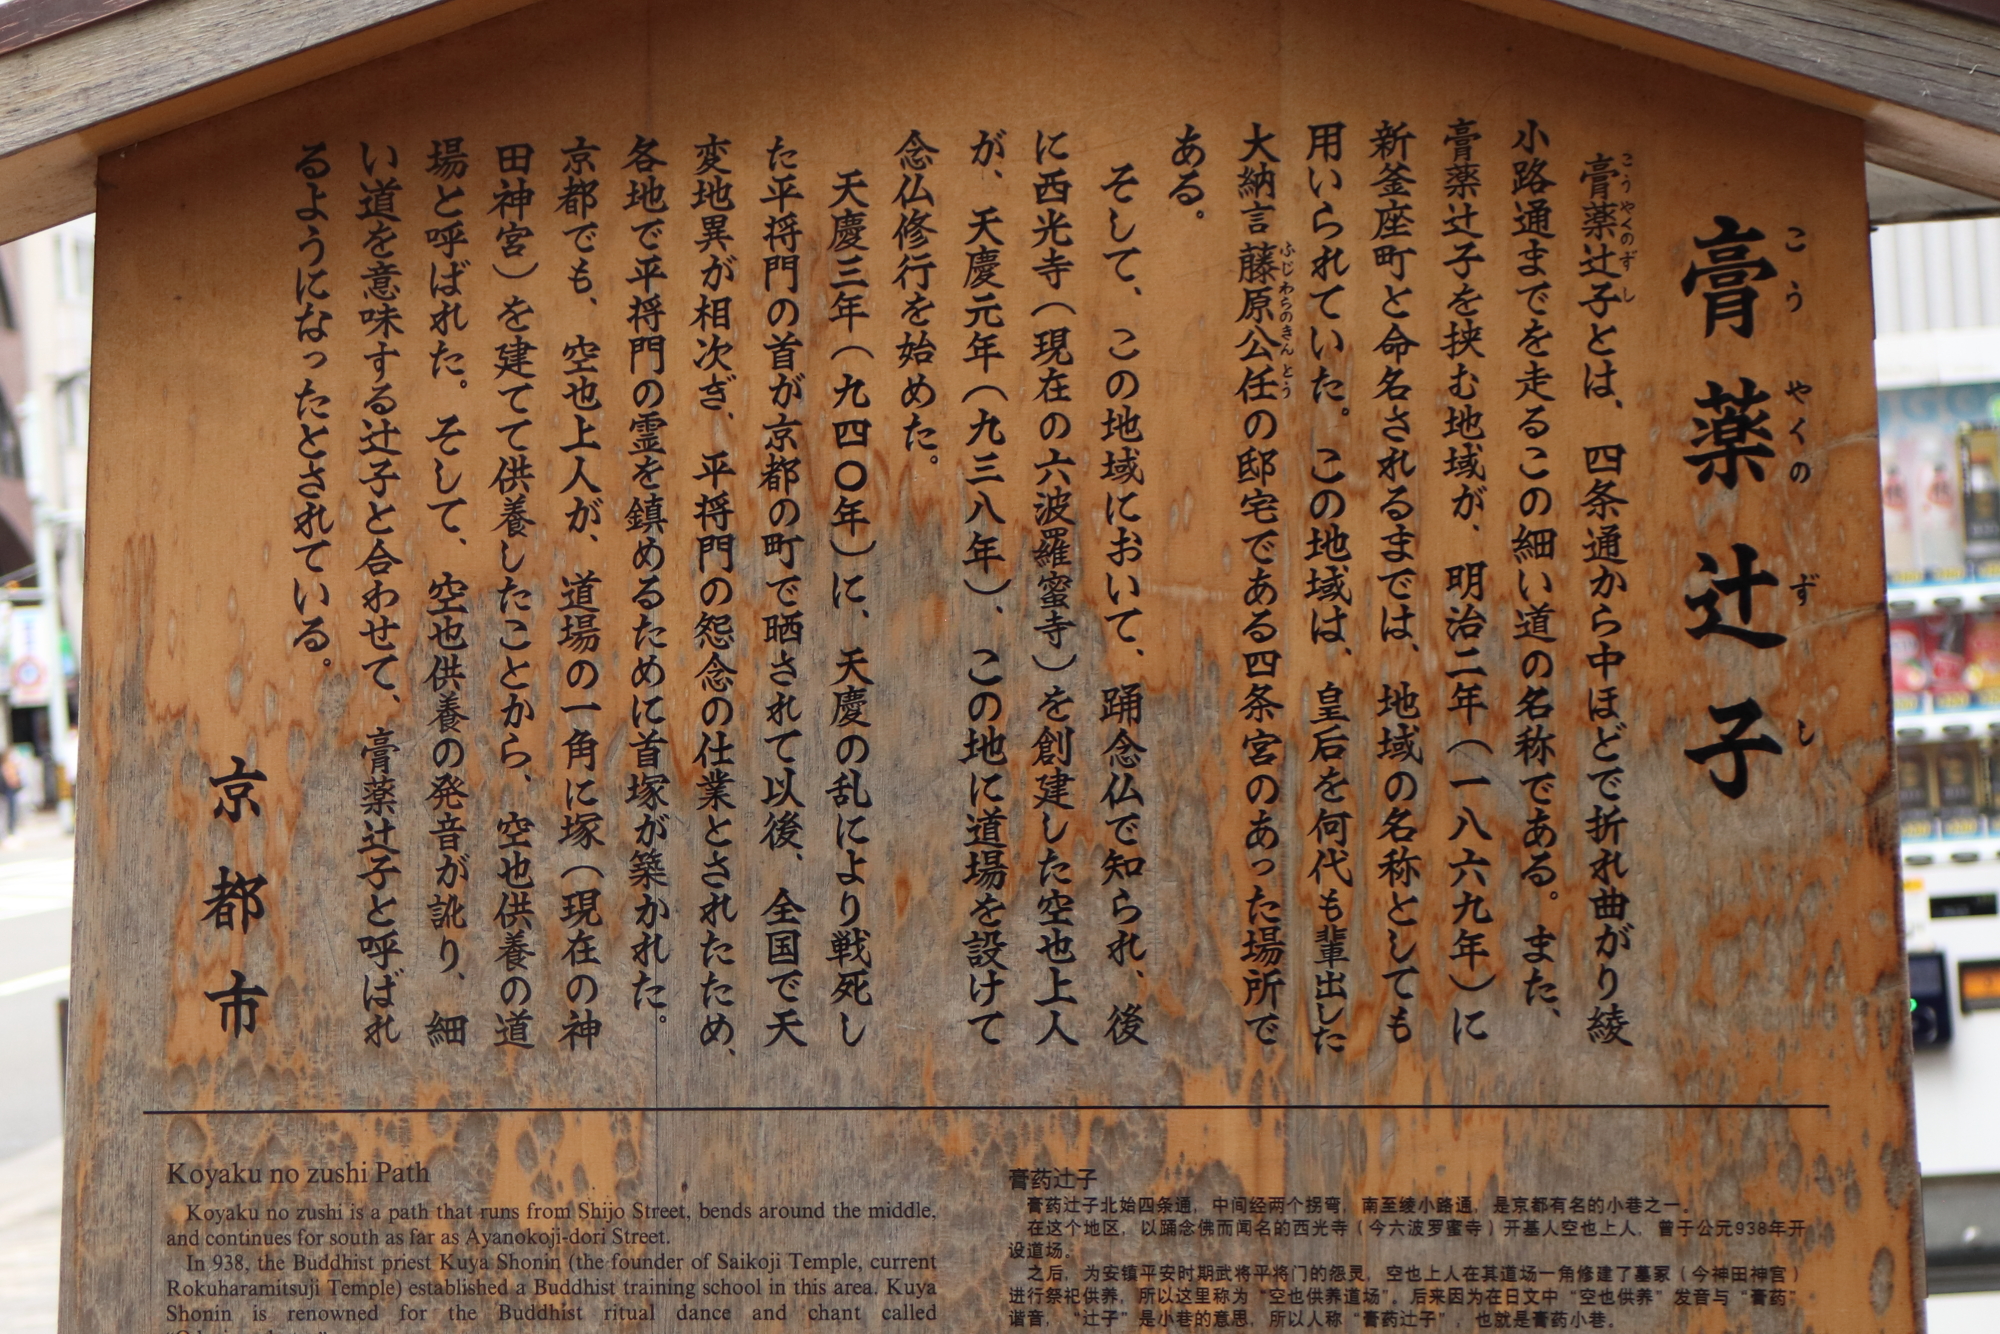 膏薬辻子
こうやくのずし
膏薬辻子とは、四条通から中ほどで折れ曲がり綾
こうやくのずし
小路通までを走るこの細い道の名称である。また、
膏薬辻子を挟む地域が、明治二年（一八六九年）に
新釜座町と命名されるまでは、地域の名称としても
用いられていた。この地域は、皇后を何代も輩出した
大納言藤原公任の邸宅である四条宮のあった場所で
ふじわらのきんとう
ある。
そして、この地域において、踊念仏で知られ、後
に西光寺（現在の六波羅蜜寺）を創建した空也上人
が、天慶元年（九三八年）、この地に道場を設けて
念仏修行を始めた。
天慶三年（九四〇年）に、天慶の乱により戦死し
た平将門の首が京都の町で晒されて以後、全国で天
変地異が相次ぎ、平将門の怨念の仕業とされたため、
各地で平将門の霊を鎮めるために首塚が築かれた。
京都でも、空也上人が、道場の一角に塚（現在の神
田神宮）を建てて供養したことから、空也供養の道
場と呼ばれた。そして、空也供養の発音が訛り、細
い道を意味する辻子と合わせて、膏薬辻子と呼ばれ
るようになったとされている。
京都市
Koyaku no zushi Path
Koyaku no zushi is a path that runs from Shijo Street, bends around the middle,
and continues for south as far as Ayanokoji-dori Street.
In 938, the Buddhist priest Kuya Shonin (the founder of Saikoji Temple, current
Rokuharamitsuji Temple) established a Buddhist training school in this area. Kuya
Shonin is renowned for the Buddhist ritual dance and chant called
膏药辻子
膏药辻子北始四条通，中间经两个拐弯，南至绫小路通，是京都有名的小巷之一。
在这个地区，以踊念佛而闻名的西光寺（今六波罗蜜寺）开基人空也上人，曾于公元938年开
设道场。
之后，为安镇平安时期武将平将门的怨灵，空也上人在其道场一角修建了墓冢（今神田神宫）
进行祭祀供养，所以这里称为“空也供养道场”。后来因为在日文中“空也供养”发音与“膏药”
谐音，“辻子”是小巷的意思，所以人称“膏药辻子”，也就是膏药小巷。